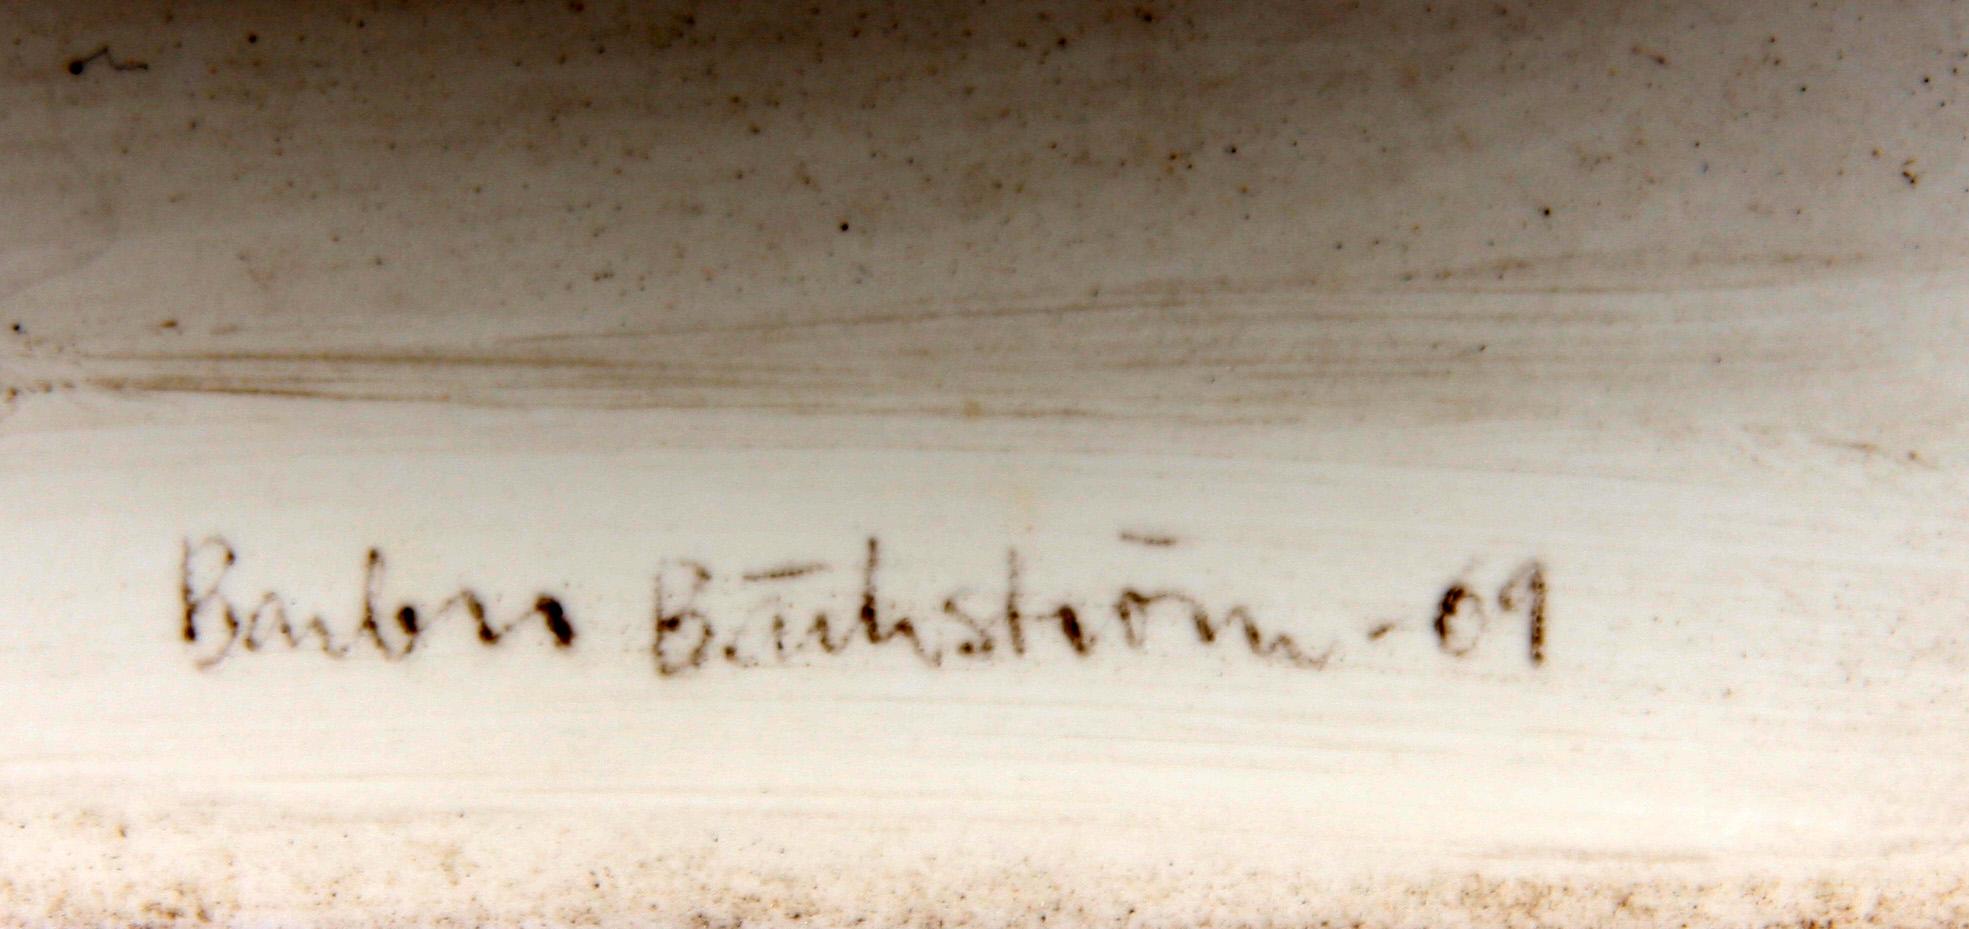 Barbro Bäckström - 69